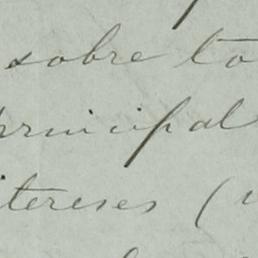 sobre to
principal
itereses (